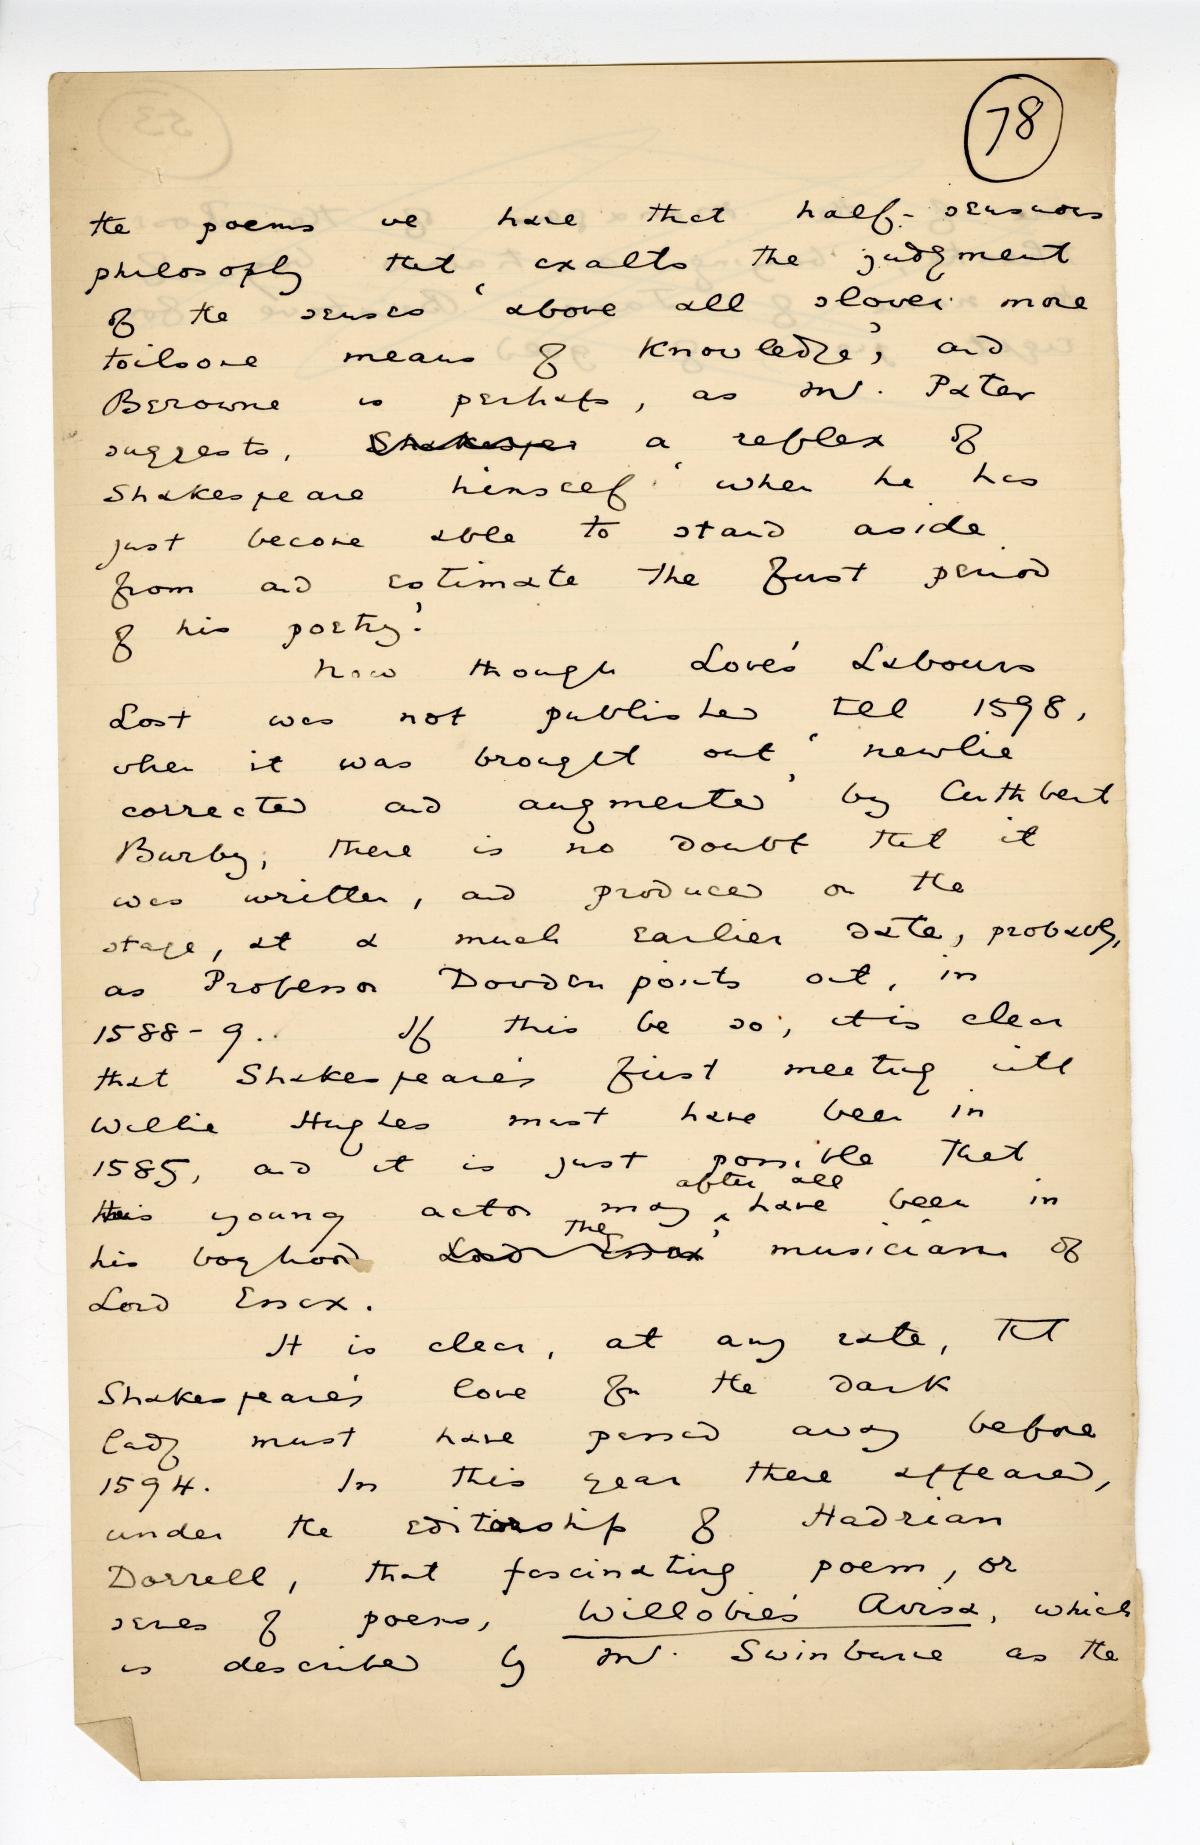 78
the poems we have that half-sensuous
philosophy that exalts the judgment
of the senses 'above all slower more
toilsome means of knowledge', and
Berowne is perhaps, as Mr. Pater
suggests, Shakesper a reflex of
Shakespeare himself 'when he has
just become able to stand aside
from and estimate the first period
of his poetry.'
Now though Love's Labours
Lost was not published till 1598,
when it was brought out 'newlie
corrected and augmented' by Cuthbert
Burby, there is no doubt that it
was written, and produced on the
stage, at a much earlier date, probably,
as Professor Dowden points out, in
1588-9. If this be so, it is clear
that Shakespeare's first meeting with
Willie Hughes must have been in
1585, and it is just possible that
this young actor may after all have been in
his boyhood Lord Essex' the musician of
Lord Essex.
It is clear, at any rate, that
Shakespeare's love for the dark
lady must have passed away before
1594. In this year there appeared,
under the editorship of Hadrian
Dorrell, that fascinating poem, or
series of poems, Willobie's Avisa, which
is described by Mr. Swinburne as the